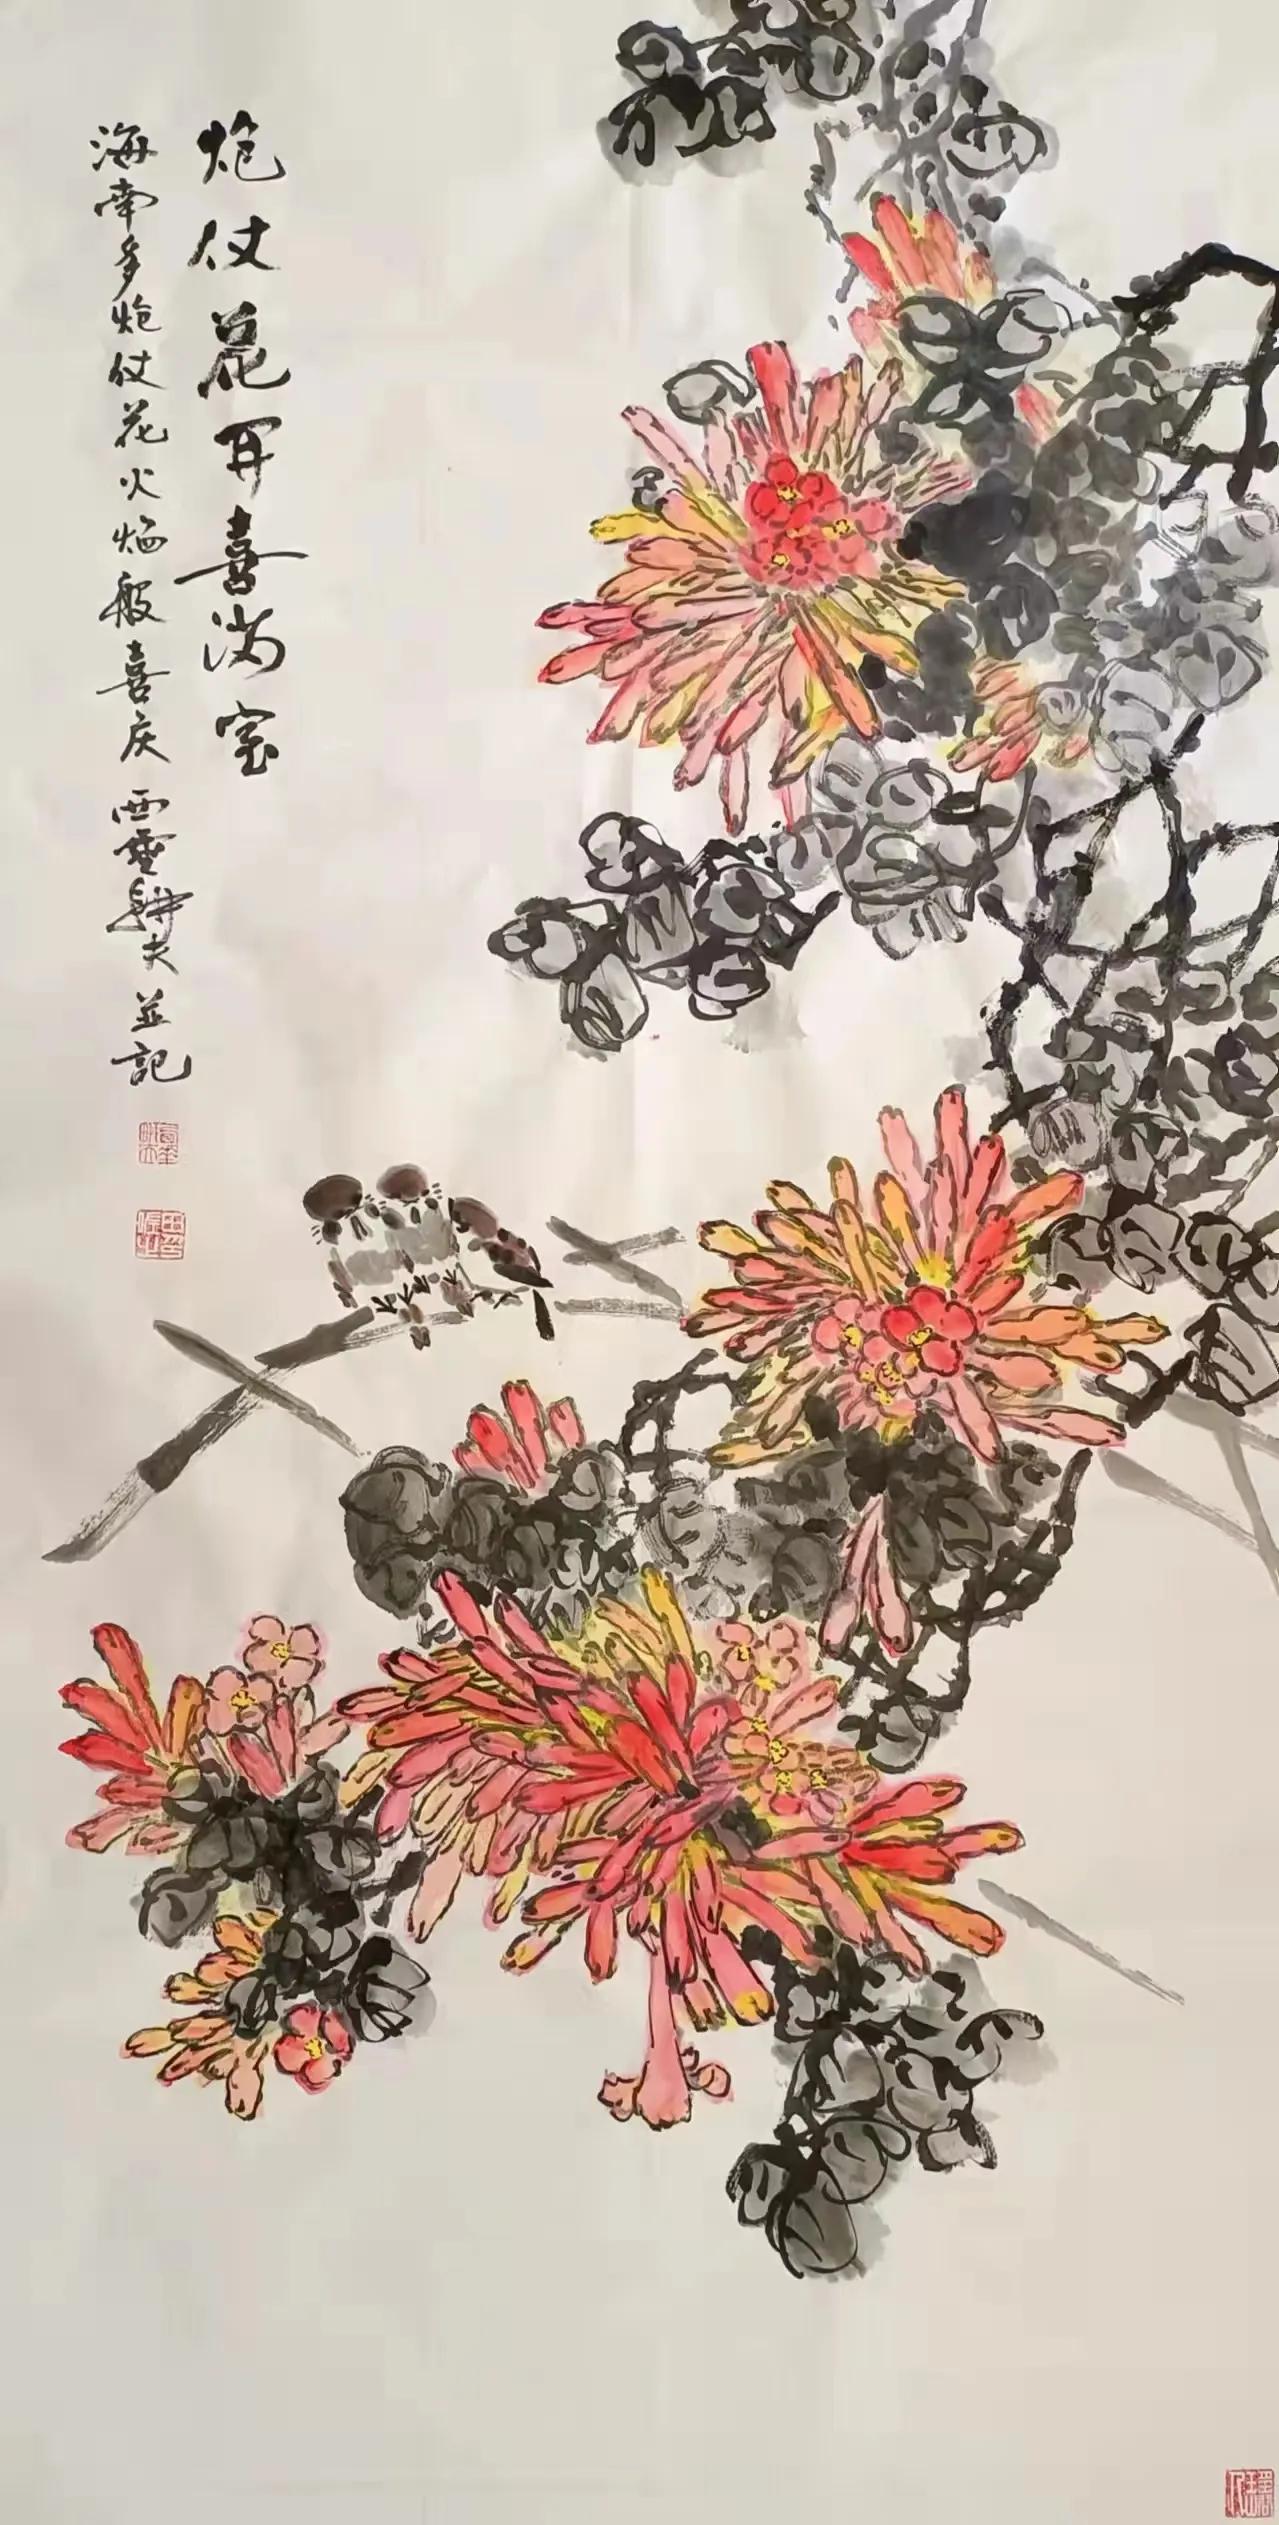 炮仗花开喜满室
海南多炮仗花火焰般喜庆西雲耕夫並記